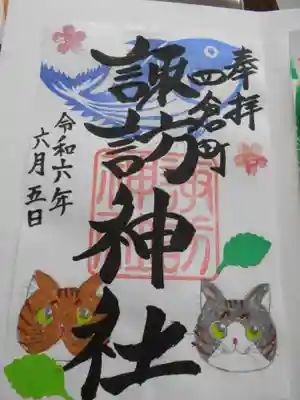 奉拝
四倉町
諏訪神社
令和六年
六月五日